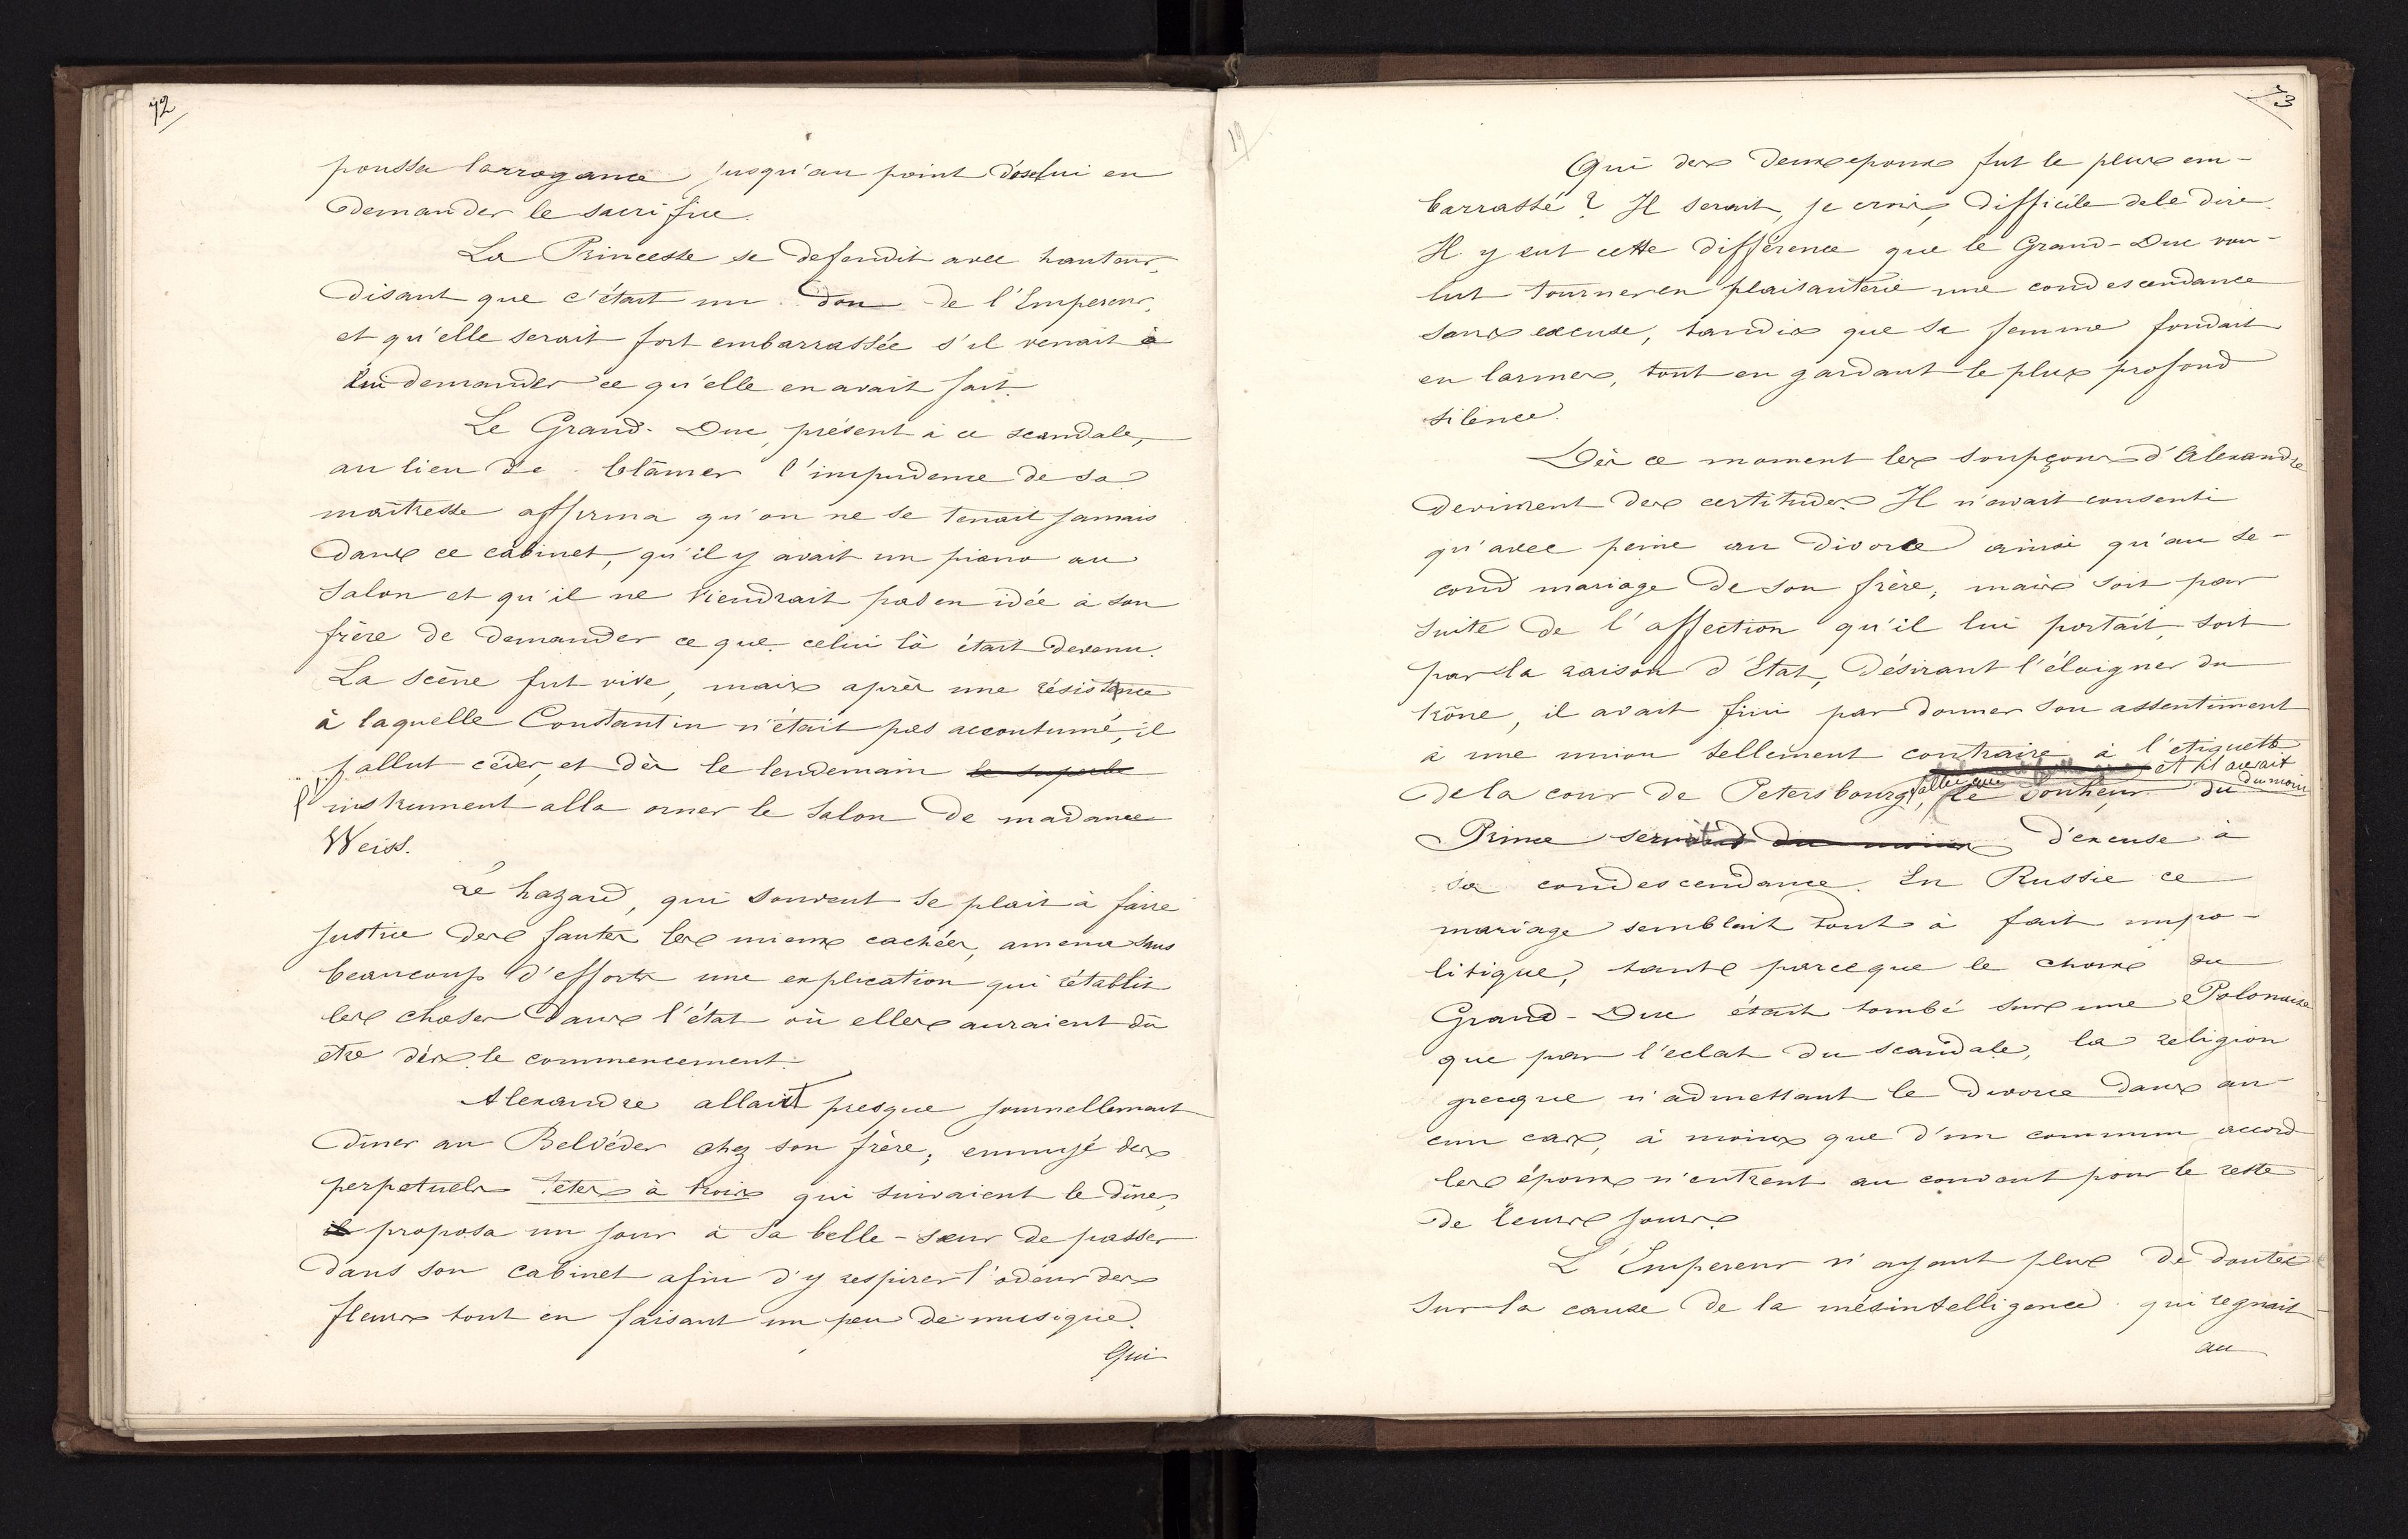 72
poussa l'arrogance jusqu'au point d'oser lui en
demander le sacrifice.
La Princesse se defendit avec hauteur,
disant que c'était un don de l'Empereur,
et qu'elle serait fort embarrassée s'il venait à
lui demander ce qu'elle en avait fait.
Le Grand-Duc, présent à ce scandale,
au lieu de blâmer l'impudence de sa
maîtresse affirma qu'on ne se tenait jamais
dans ce cabinet, qu'il y avait un piano au
salon et qu'il ne viendrait pas en idée à son
frère de demander ce que celui là était devenu.
La scène fut vive, mais après une résistance
à laquelle Constantin n'était pas accoutumé, il
fallut céder, et dès le lendemain le superbe
l'instrument alla orner le salon de madame
Weiss.
Le hazard, qui souvent se plait à faire
justice des fautes les mieux cachées, amena sans
beaucoup d'efforts une explication qui rétablit
les choses dans l'état où elles auraient dû
être dès le commencement.
Alexandre allait presque journellement
dîner au Belvéder chez son frère; ennuyé des
perpetuels têtes à trois qui suivaient le dîner,
il proposa un jour à sa belle-sœur de passer
dans son cabinet afin d'y respirer l'odeur des
fleurs tout en faisant un peu de musique.
Qui
19
73
Qui des deux epoux fut le plus em-
barrassé? Il serait, je crois, difficile de le dire.
Il y eut cette différence que le Grand-Duc vou-
lut tourner en plaisanterie une condescendance
sans excuse, tandis que sa femme fondait
en larmes, tout en gardant le plus profond
silence.
Dès ce moment les soupçons d'Alexandre
devinrent des certitudes. Il n'avait consenti
qu'avec peine au divorce ainsi qu'au se-
cond mariage de son frère; mais soit par
suite de l'affection qu'il lui portait, soit
par la raison d'Etat, désirant l'éloigner du
trône, il avait fini par donner son assentiment
à une union tellement contraire à l'etiquette
et il aurait
de la cour de Petersbourg, fallu que le bonheur du du moins
Prince servit du moins d'excuse à
sa condescendance. En Russie ce
mariage semblait tout à fait impo-
litique, tant parceque le choix du
Grand-Duc était tombé sur une Polonaise
que par l'eclat du scandale, la religion
grecque n'admettant le divorce dans au-
cun cas, à moins que d'un commun accord
les époux n'entrent au couvent pour le reste
de leurs jours.
L'Empereur n'ayant plus de doutes
sur la cause de la mésintelligence qui regnait
au